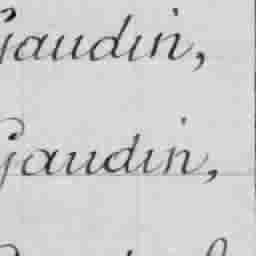 Gaudin,
Gaudin,